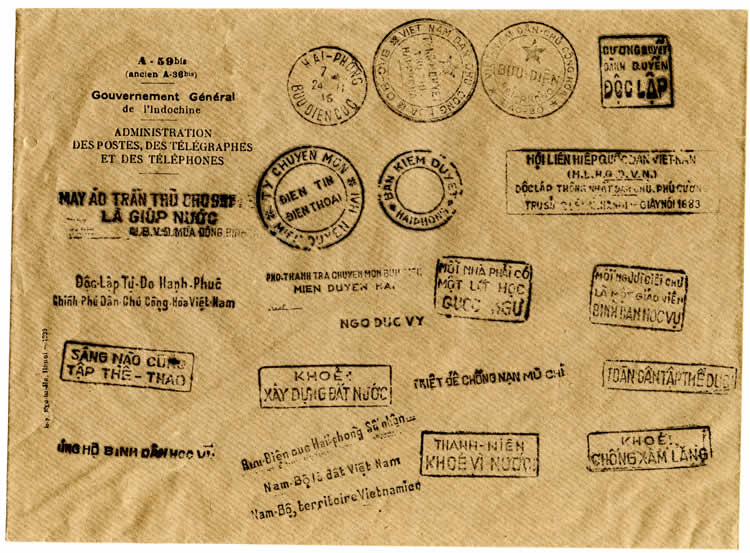 A - 39bis
(ancien A-36bis)
Gouvernement Général
de l'Indochine
ADMINISTRATION
DES POSTES, DES TÉLÉGRAPHES
ET DES TÉLÉPHONES
HAI-PHONG
7
24 11
BUU DIEN CUC
VIỆT NAM DÂN CHỦ CỘNG HÒA
BƯU-ĐIỆN
CƯƠNG QUYẾT
GIÀNH QUYỀN
ĐỘC LẬP
MAY ÁO TRẤN THỦ CHO
LÀ GIÚP NƯỚC
U.B.V.Đ. MÙA ĐÔNG BINH
TY CHUYÊN MÔN
ĐIỆN TÍN
ĐIỆN THOẠI
BAN KIEM DUYET
HAIPHONG
HỘI LIÊN HIỆP QUỐC DÂN VIỆT-NAM
(H.L.H.Q.D.V.N.)
ĐỘC LẬP THỐNG NHẤT DÂN CHỦ, PHÚ CƯỜNG
TRỤ SỞ HANOI - GIÂY NÓI 1683
Độc-Lập Tự-Do Hạnh-Phúc
Chính Phủ Dân-Chủ Cộng-Hòa Việt-Nam
PHO-THANH TRA CHUYEN MON BUU
MIEN DUYEN HAI
NGO DUC VY
MỖI NHÀ PHẢI CÓ
MỘT LỚP HỌC
QUỐC NGỮ
MỖI NGƯỜI BIẾT CHỮ
LÀ MỘT GIÁO VIÊN
BÌNH DÂN HỌC VỤ
SÁNG NÀO CŨNG
TẬP THỂ-THAO
KHOẺ!
XÂY DỰNG ĐẤT NƯỚC
TRIỆT ĐỂ CHỐNG NẠN MÙ CHỮ
TOÀN DÂN TẬP THỂ DỤC
ỦNG HỘ BÌNH DÂN HỌC VỤ
Bưu-Điện cục Hải-phòng
Nam-Bộ là đất Việt Nam
Nam-Bộ, territoire Vietnamien
THANH-NIÊN
KHOẺ VÌ NƯỚC!
KHOẺ!
CHỐNG XÂM LĂNG